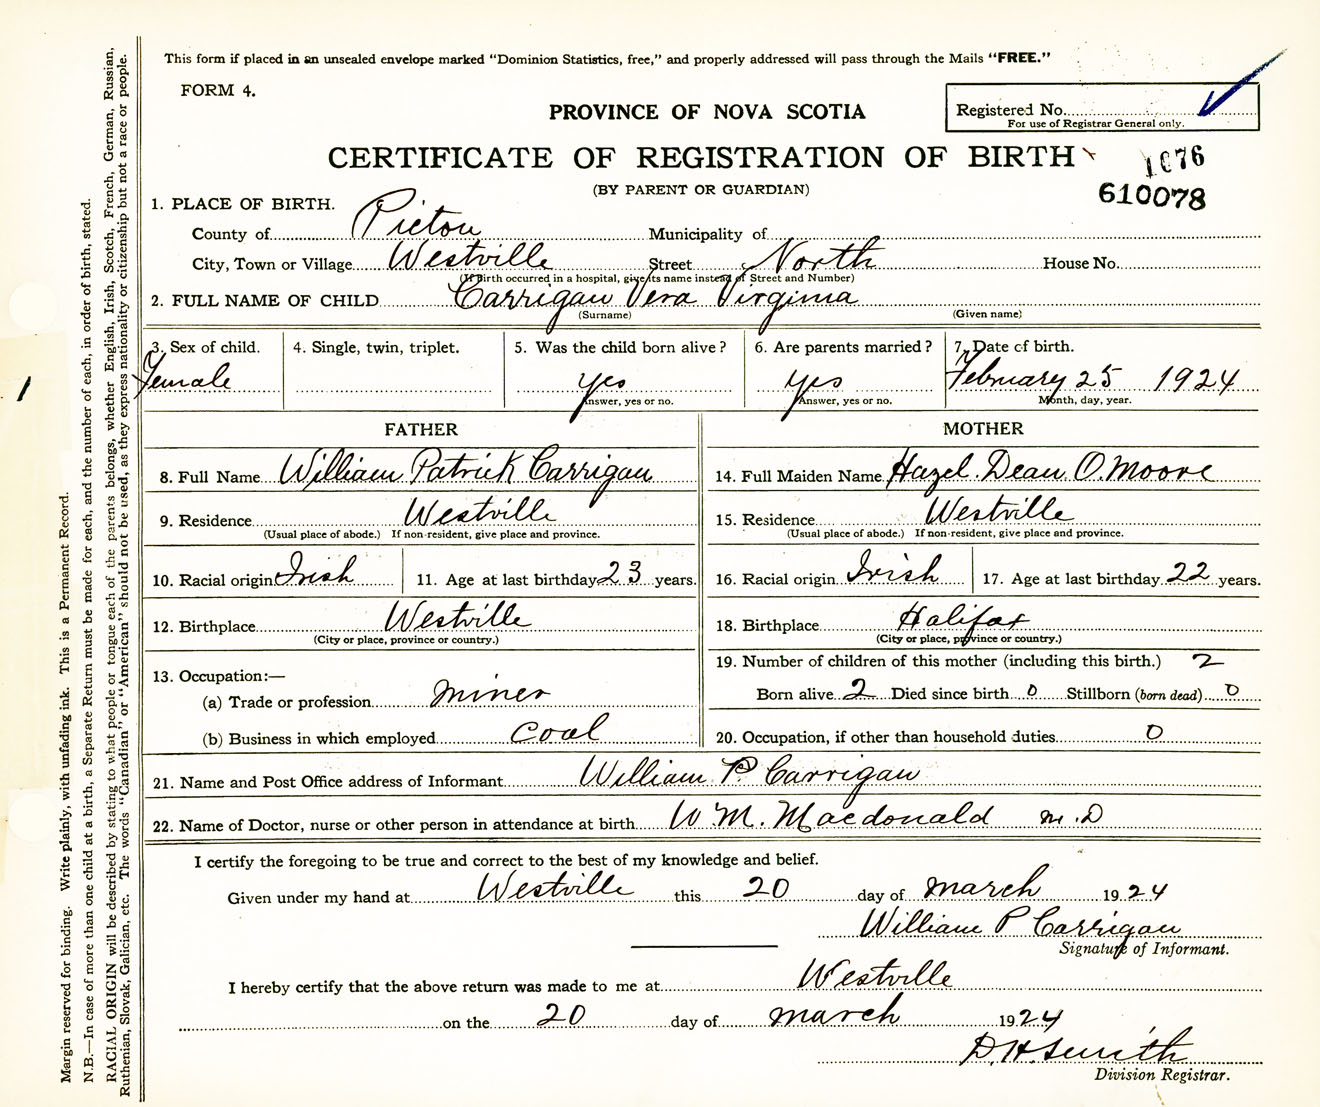 This form if placed in an unsealed envelope marked "Dominion Statistics, free," and properly addressed will pass through the Mails "FREE."
FORM 4.
PROVINCE OF NOVA SCOTIA
Registered No.
For use of Registrar General only.
CERTIFICATE OF REGISTRATION OF BIRTH
1076
(BY PARENT OR GUARDIAN)
610078
1. PLACE OF BIRTH.
County of Pictou Municipality of
City, Town or Village Westville Street North House No.
(If birth occurred in a hospital, give its name instead of Street and Number)
2. FULL NAME OF CHILD Carrigan Vera Virginia
(Surname) (Given name)
3. Sex of child. 4. Single, twin, triplet. 5. Was the child born alive? 6. Are parents married? 7. Date of birth.
Female yes yes February 25 1924
Answer, yes or no. Answer, yes or no. Month, day, year.
FATHER MOTHER
8. Full Name William Patrick Carrigan 14. Full Maiden Name Hazel Dean O.Moore
9. Residence Westville 15. Residence Westville
(Usual place of abode.) If non-resident, give place and province. (Usual place of abode.) If non-resident, give place and province.
10. Racial origin Irish 11. Age at last birthday 23 years. 16. Racial origin Irish 17. Age at last birthday 22 years.
12. Birthplace Westville 18. Birthplace Halifax
(City or place, province or country.) (City or place, province or country.)
13. Occupation:— 19. Number of children of this mother (including this birth.) 2
(a) Trade or profession miner Born alive 2 Died since birth 0 Stillborn (born dead) 0
(b) Business in which employed Coal 20. Occupation, if other than household duties 0
21. Name and Post Office address of Informant William P Carrigan
22. Name of Doctor, nurse or other person in attendance at birth W. M. Macdonald M.D
I certify the foregoing to be true and correct to the best of my knowledge and belief.
Given under my hand at Westville this 20 day of March 1924
William P Carrigan
Signature of Informant.
I hereby certify that the above return was made to me at Westville
on the 20 day of March 1924
D. H. Smith
Division Registrar.
Margin reserved for binding. Write plainly, with unfading ink. This is a Permanent Record.
N.B.—In case of more than one child at a birth, a Separate Return must be made for each, and the number of each, in order of birth, stated.
RACIAL ORIGIN will be described by stating to what people or tongue each of the parents belongs, whether English, Irish, Scotch, French, German, Russian,
Ruthenian, Slovak, Galician, etc. The words "Canadian" or "American" should not be used, as they express nationality or citizenship but not a race or people.